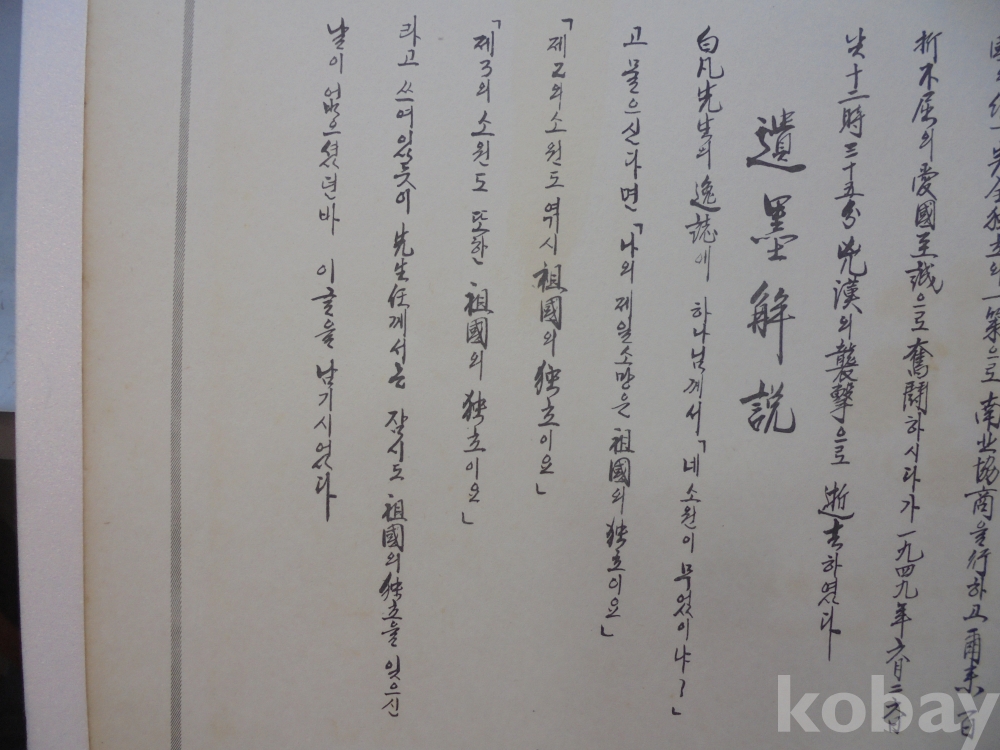 全独立의 一策으로 南北協商을 行하고 爾来 百
折不屈의 愛國至誠으로 奮鬪하시다가 一九四九年 六月二六日
낮 十二時 三十五分 兇漢의 襲撃으로 逝去하였다
遺墨解説
白凡先生의 逸誌에 하나님께서 「네 소원이 무었이냐!」
고 물으신다면 「나의 제일소망은 祖國의 独立이요」
「제2의 소원도 엮시 祖國의 独立이요」
「제3의 소원도 또한 祖國의 独立이요」
라고 쓰여있듯이 先生任께서는 잠시도 祖國의 独立을 잊으신
날이 없으셨던바 이글을 남기시었다
kobay